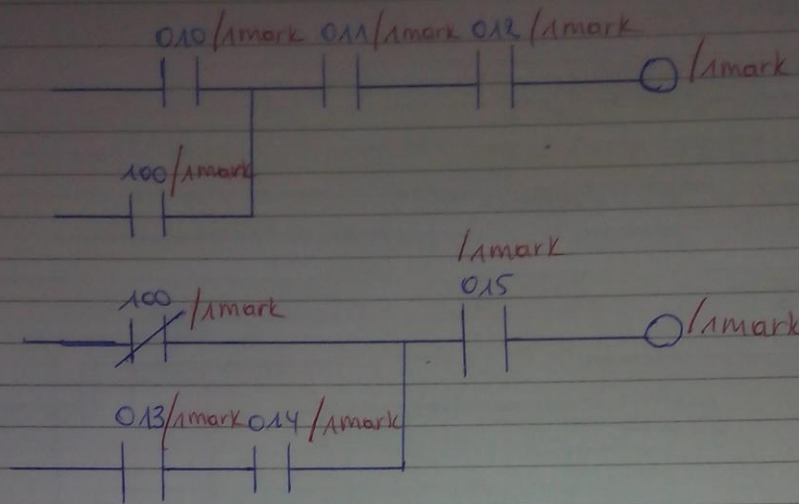 010/1mark 011/1mark 012/1mark
/1mark
100/1mark
/1mark
015
100/1mark
/1mark
013/1mark 014/1mark